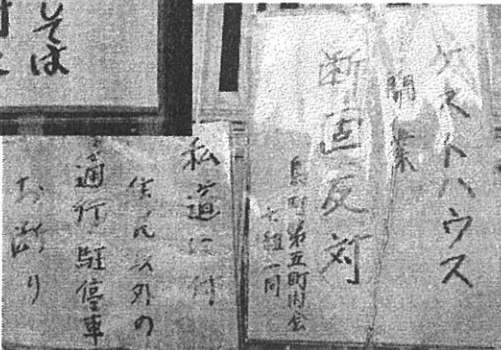 ゲストハウス
開業
断固反対
町第五町内会
組一同
私道に付
住民以外の
通行駐停車
お断り
そば